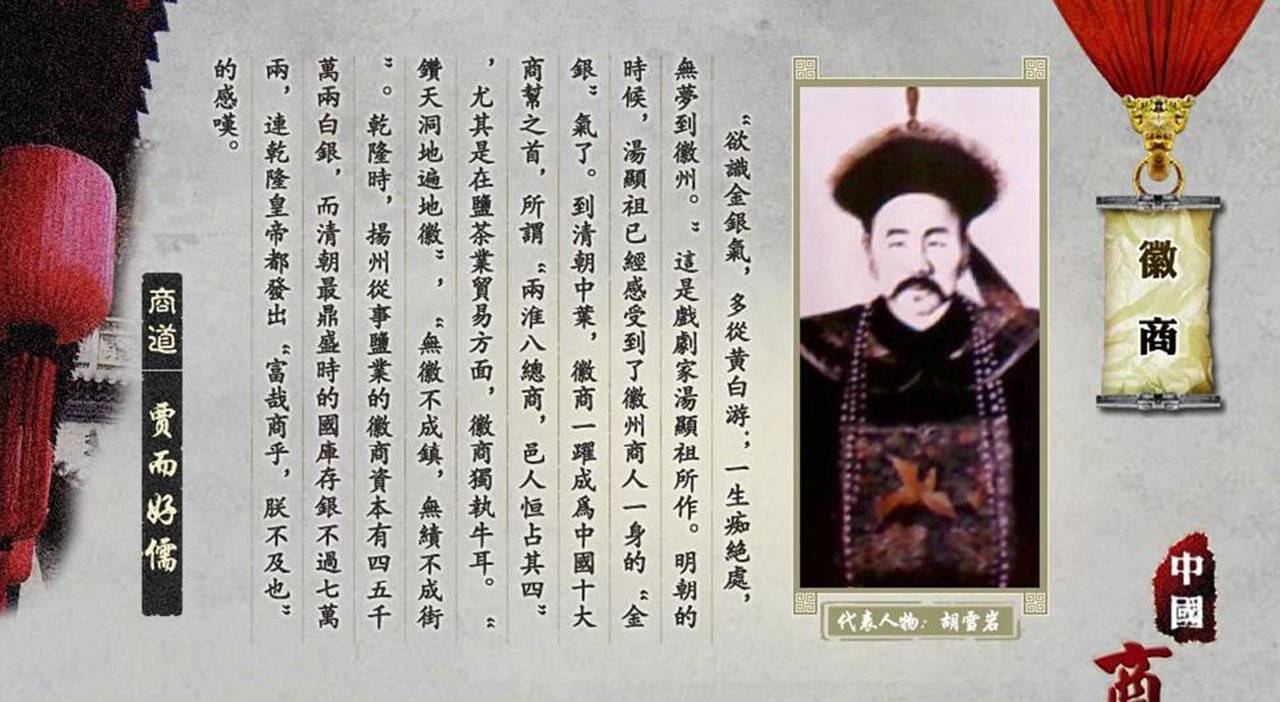 徽商
中國
商
代表人物：胡雪岩
“欲識金銀氣，多從黃白游；，一生痴絕處，
無夢到徽州。”這是戲劇家湯顯祖所作。明朝的
時候，湯顯祖已經感受到了徽州商人一身的“金
銀”氣了。到清朝中葉，徽商一躍成爲中國十大
商幫之首，所謂“兩淮八總商，邑人恒占其四”
，尤其是在鹽茶業貿易方面，徽商獨執牛耳。“
鑽天洞地遍地徽”，“無徽不成鎮，無績不成街
”。乾隆時，揚州從事鹽業的徽商資本有四五千
萬兩白銀，而清朝最鼎盛時的國庫存銀不過七萬
兩，連乾隆皇帝都發出“富哉商乎，朕不及也”
的感嘆。
商道 賈而好儒